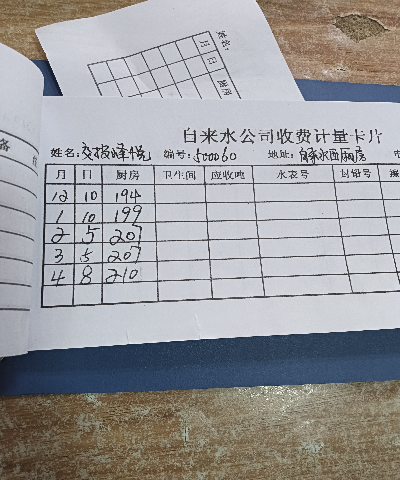 姓名:
月 日 厨房
自来水公司收费计量卡片
姓名: 编号: 500060 地址:
月 日 厨房 卫生间 应收吨 水表号 封铅号
12 10 194
1 10 199
2 5 207
3 5 207
4 8 210